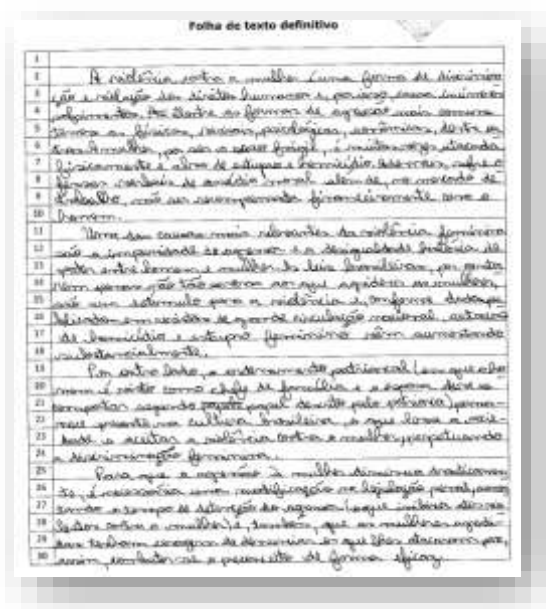 Folha de texto definitivo
1
2 A violência contra a mulher é uma forma de discrimina
3 ção e violação dos direitos humanos e, por isso, causa inúmeros
4 sofrimentos. Dentre as formas de agressão mais comuns
5 temos as físicas, sexuais, psicológicas, econômicas, dentre ou
6 tras. A mulher, por ser o sexo frágil, é muitas vezes atacada
7 fisicamente e alvo de estupro e homicídio. Ademais, sofre
8 verbais de assédio moral além de, no mercado de
9 trabalho, não ser recompensada financeiramente como o
10 homem.
11 Uma das causas mais relevantes da violência feminina
12 são a impunidade do agressor e a desigualdade histórica de
13 poder entre homem e mulher. As leis brasileiras, por
14 penas não tão severas aos que agridem as mulheres,
15 são um estímulo para a violência e, conforme dados pu
16 blicados em revistas de grande circulação nacional, os casos
17 de homicídio e estupro feminino vêm aumentando
18 substancialmente.
19 Por outro lado, o ordenamento patriarcal (em que o ho
20 mem é visto como chefe de família e a esposa deve se
21 comportar segundo papel descrito pelo patriarca) perma
22 nece presente na cultura brasileira, o que leva a socie
23 dade a aceitar a violência contra a mulher, perpetuando
24 a discriminação feminina.
25 Para que a agressão à mulher diminua drasticamen
26 te, é necessária uma modificação na legislação penal, aumen
27 tando o tempo de detenção do agressor (o que inibiria
28 contra a mulher) e, também, que as mulheres agredi
29 das tenham coragem de denunciar os que lhes atacaram para,
30 assim, combater-se o preconceito de forma eficaz.